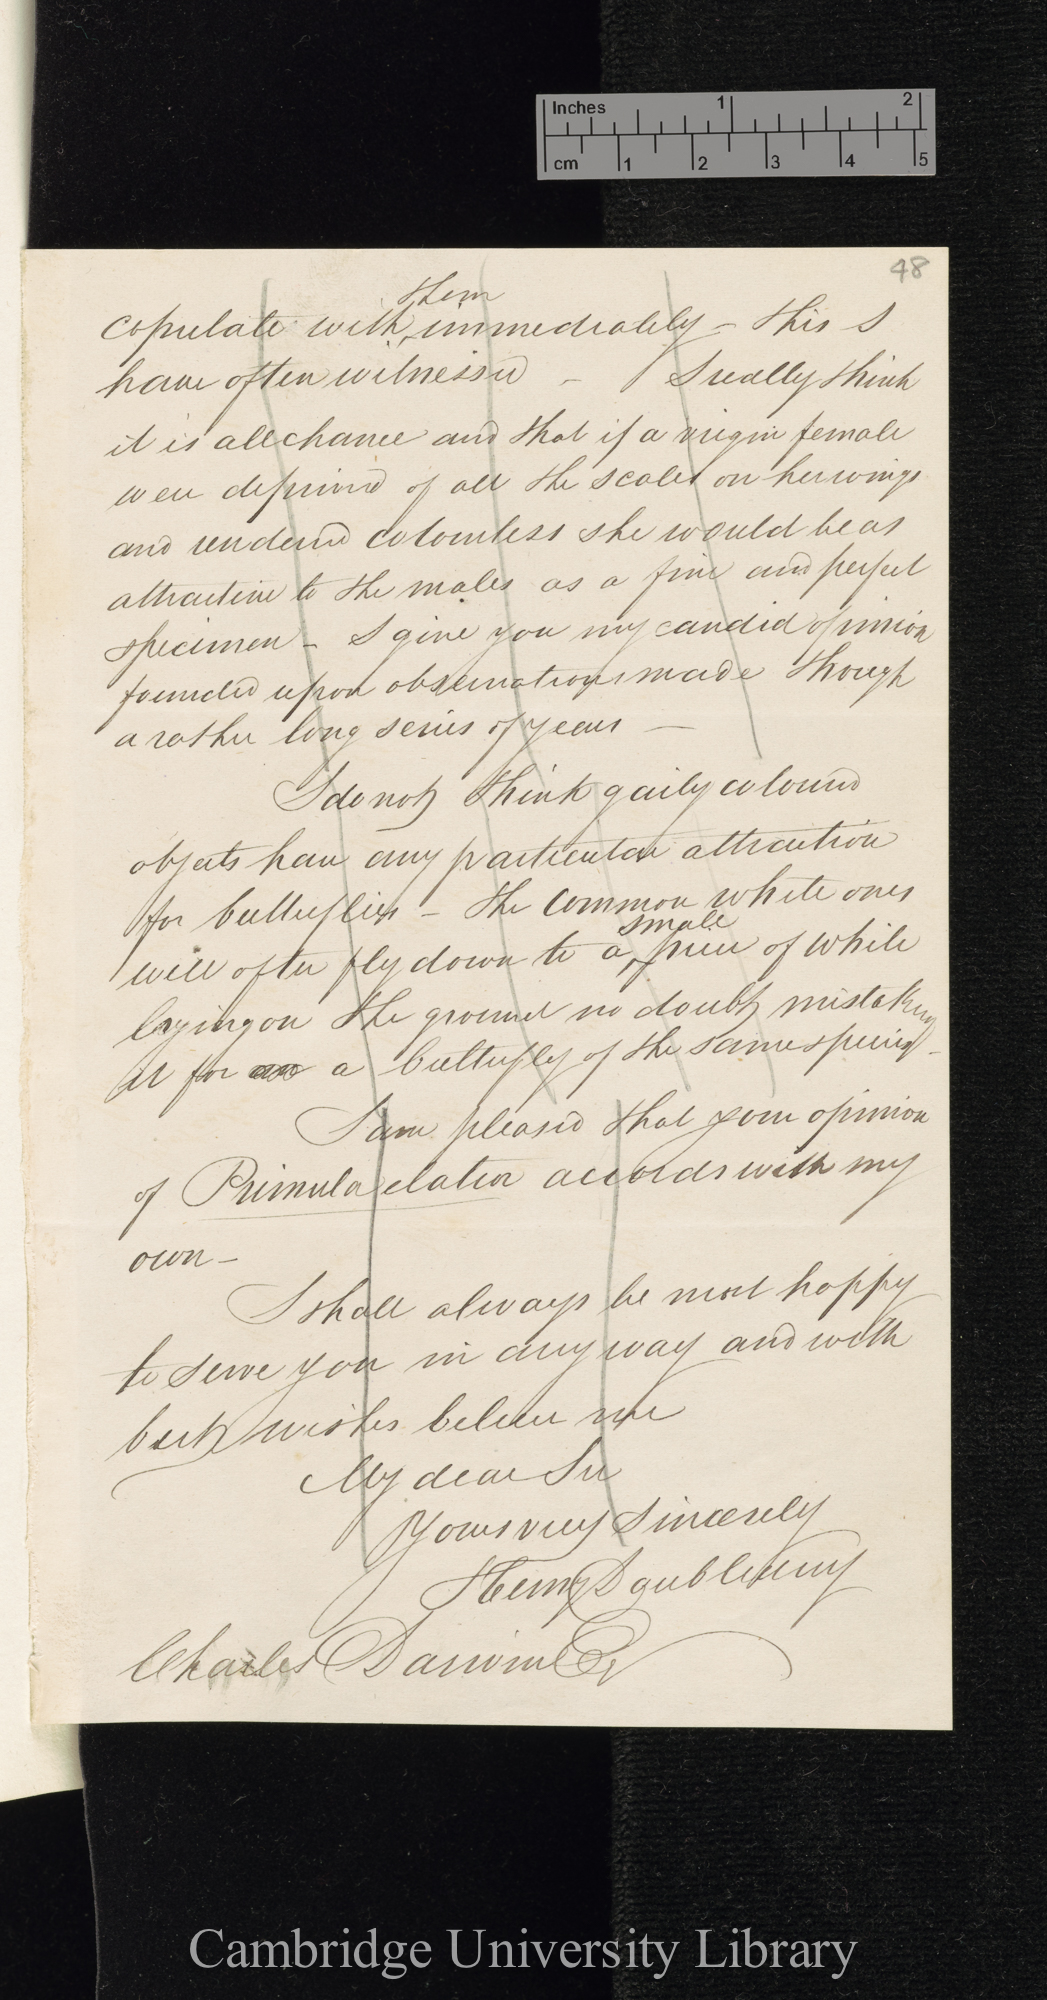 Inches 1 2
cm 1 2 3 4 5
48
them
copulate with immediately – this I
have often witnessed – I really think
it is all chance and that if a virgin female
were deprived of all the scales on her wings
and rendered colourless she would be as
attractive to the males as a fine and perfect
specimen – I give you my candid opinion
founded upon observations made though
a rather long series of years –
I do not think gaily coloured
objects have any particular attraction
for butterflies – the common white ones
small
will often fly down to a piece of white
lying on the ground no doubt mistaking
it for a butterfly of the same species –
I am pleased that your opinion
of Primula elatior accords with my
own –
I shall always be most happy
to serve you in any way and with
best wishes believe me
My dear Sir
Yours very sincerely
Henry Doubleday
Charles Darwin Esq
Cambridge University Library